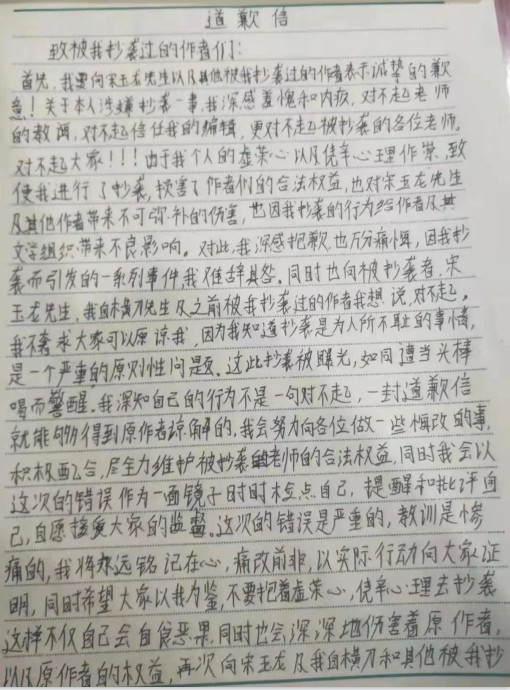 道歉信
致被我抄袭过的作者们：
首先，我要向宋玉龙先生以及其他被我抄袭过的作者表示诚挚的歉
意！关于本人涉嫌抄袭一事，我深感羞愧和内疚，对不起老师
的教诲，对不起信任我的编辑，更对不起被抄袭的各位老师。
对不起大家！！！由于我个人的虚荣心以及侥幸心理作祟，致
使我进行了抄袭，损害了作者们的合法权益，也对宋玉龙先生
及其他作者带来不可弥补的伤害，也因我抄袭的行为给作者及其
文学组织带来不良影响。对此，我深感抱歉，也万分痛悔，因我抄
袭而引发的一系列事件，我难辞其咎。同时也向被抄袭者，宋
玉龙先生，我自横刀先生及之前被我抄袭过的作者我想说，对不起。
我不奢求大家可以原谅我，因为我知道抄袭是为人所不耻的事情，
是一个严重的原则性问题。这此抄袭被曝光，如同遭当头棒
喝而警醒。我深知自己的行为不是一句对不起，一封道歉信
就能够得到原作者谅解的，我会努力向各位做一些悔改的事，
积极配合，尽全力维护被抄袭老师的合法权益，同时我会以
这次的错误作为一面镜子时时检点自己，提醒和批评自
己，自愿接受大家的监督。这次的错误是严重的，教训是惨
痛的，我将永远铭记在心，痛改前非，以实际行动向大家证
明，同时希望大家以我为鉴，不要抱着虚荣心，侥幸心理去抄袭
这样不仅自己会自食恶果，同时也会深深地伤害着原作者，
以及原作者的权益，再次向宋玉龙及我自横刀和其他被我抄